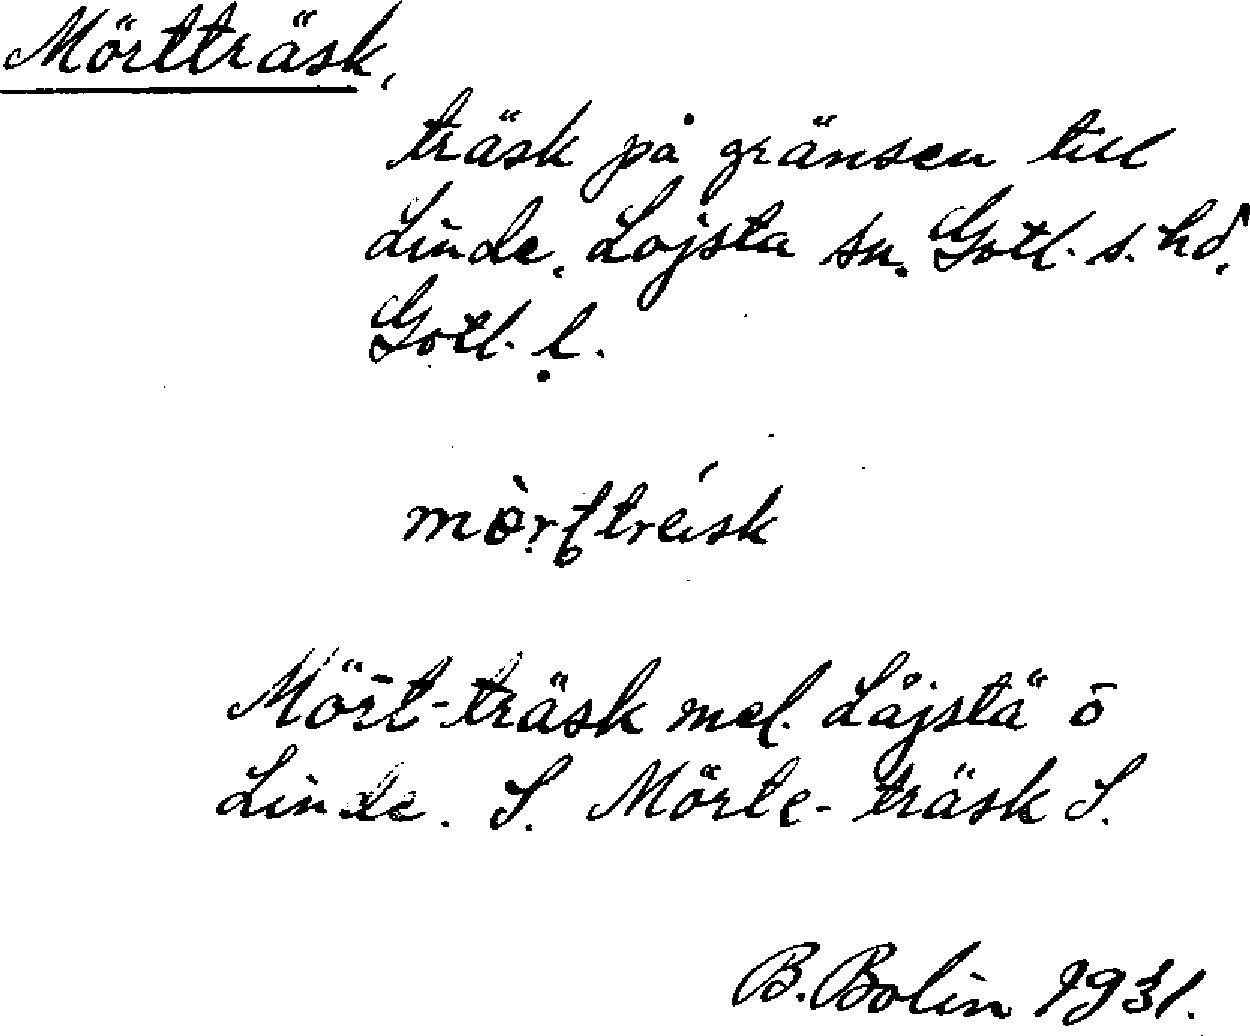 Mörtträsk,
träsk på gränsen till
Linde, Lojsta sn. Gotl. s. hd,
Gotl. l.
Mört-träsk mel. Låjstä ō
Linde. S. Mörte-träsk S.
B. Bolin 1931.